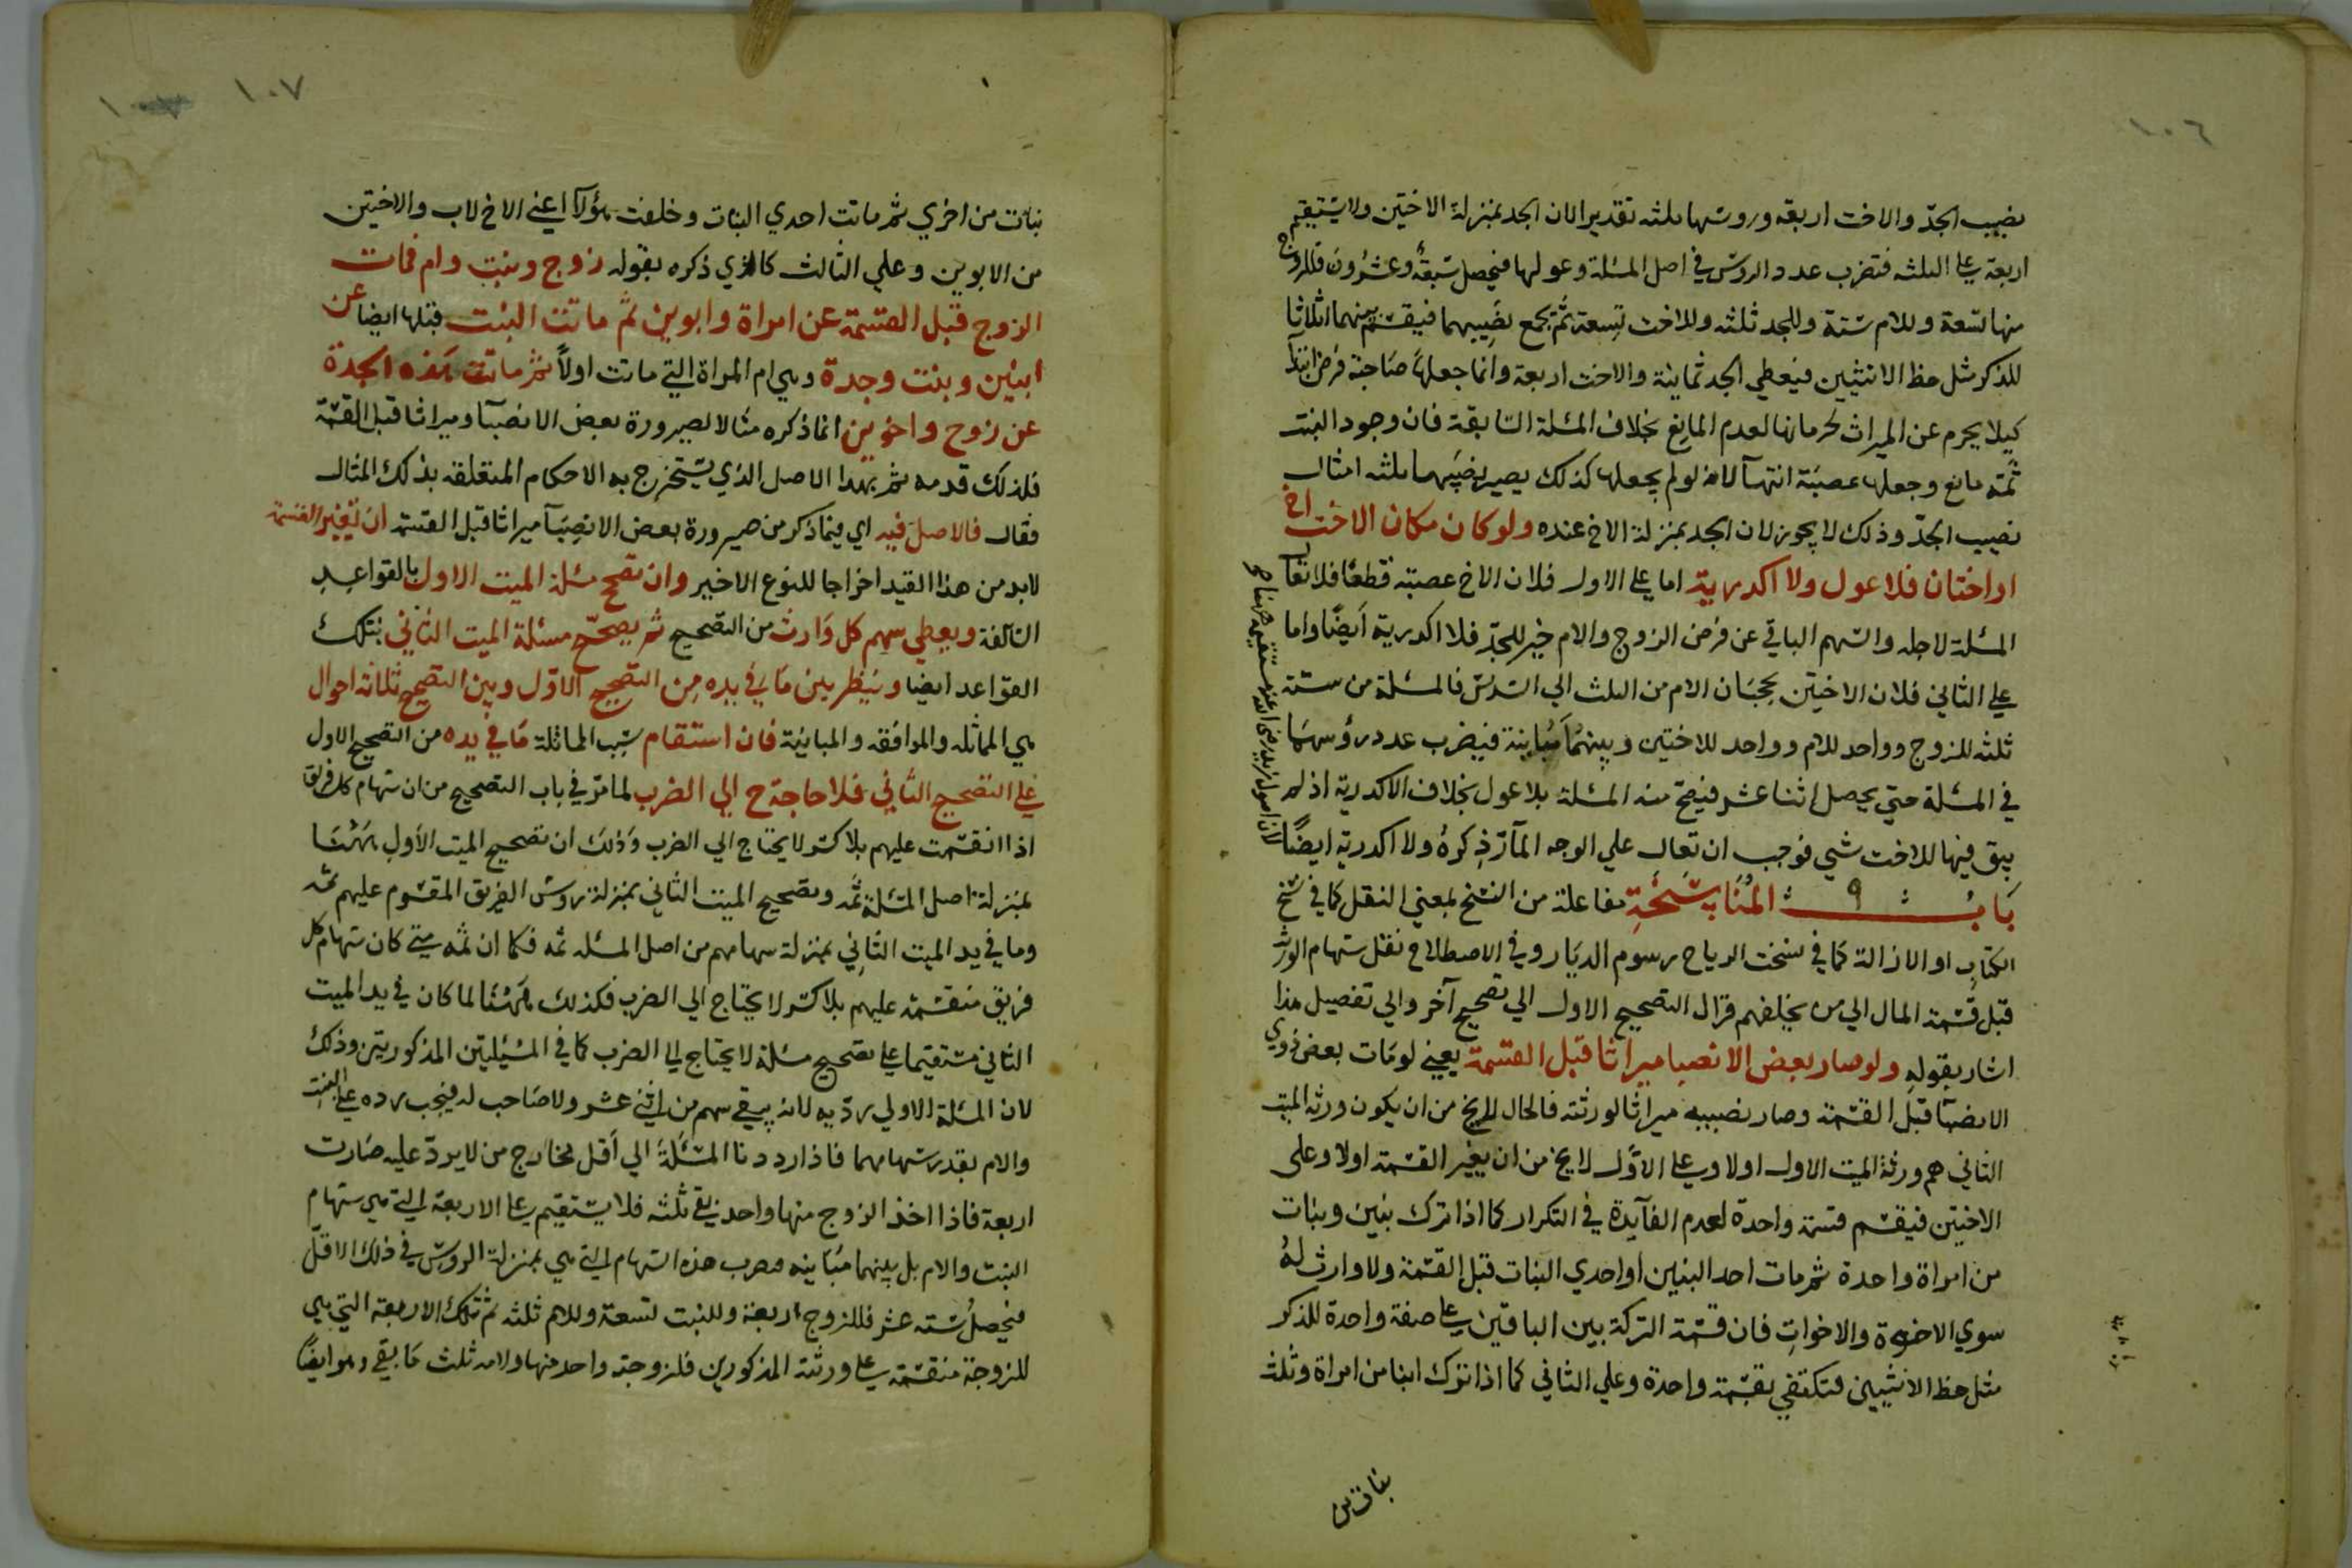 ١٠٦
نصيب الجدّ والاخت اربعة وروسها ثلثه تقديرا لان الجد بمنزلة الاختين ولا يستقيم
اربعة على الثلثه فتضرب عدد الروس في اصل المسئلة وعولها فيحصل سبعةٌ وعشرون فللزوج
منها تسعة وللام ستة وللجد ثلثه وللاخت تسعة ثم يجمع نصيبهما فيقسم بينهما اثلاثا
للذكر مثل حظ الانثيين فيعطي الجد ثمانية والاخت اربعة وانما جعلها صاحبة فرض ابتدآ
كيلا يحرم عن الميراث لحرمانها لعدم المانع بخلاف المسئلة السابقة فان وجود البنت
ثمه مانع وجعلها عصبة انتهآ لانه لو لم يجعلها كذلك يصير نصيبها ثلثه امثال
نصيب الجدّ وذلك لا يجوز لان الجد بمنزلة الاخ عنده ولو كان مكان الاخت اخ
او اختان فلا عول ولا اكدرية اما على الاول فلان الاخ عصبة قطعًا فلا تعال
المسئلة لاجله والسهم الباقي عن فرض الزوج والام خير للجدّ فلا اكدرية ايضًا واما
على الثاني فلان الاختين يحجبان الام من الثلث الي السدس فالمسئلة من ستة
ثلثه للزوج وواحد للام وواحد للاختين وبينهما مباينة فيضرب عدد رؤسهما
في المسئلة حتى يحصل اثنا عشر فيصح منه المسئلة بلا عول بخلاف الاكدرية اذ لم
يبق فيها للاخت شي فوجب ان تعال علي الوجه المآرّ ذكره ولا اكدرية ايضًا
لان اصول زيد رضى الله عنه مستقيمة ههنا
باب المناسخة مفاعلة من النسخ بمعني النقل كما في نسخ
الكتاب او الازالة كما في نسخت الرياح رسوم الديار وفي الاصطلاح نقل سهام الورثة
قبل قسمة المال الي من يخلفهم التصحيح الاول الي تصحيح آخر والي تفصيل هذا
اشار بقوله ولو صار بعض الانصبا ميراثا قبل القسمة يعني لو مات بعض ذوي
الانصبآ قبل القسمة وصار نصيبه ميراثا لورثته فالحال لايخ من ان يكون ورثة الميت
الثاني هم ورثة الميت الاول اولا وعلى الاوّل لا يخ من ان يغير القسمة اولا وعلى
الاخيرين فيقسم قسمة واحدة لعدم الفآيدة في التكرار كما اذا ترك بنين وبنات
من امراة واحدة ثم مات احد البنين او احدي البنات قبل القسمة ولا وارث لهُ
سوي الاخوة والاخوات فان قسمة التركة بين الباقين على صفة واحدة للذكر
مثل حظ الانثيين فتكتفي بقسمة واحدة وعلي الثاني كما اذا ترك ابنا من امراة وثلث
بنات من
١٠٧
بنات من اخري ثم ماتت احدي البنات وخلفت هؤلآ اعني الاخ لاب والاختين
من الابوين وعلي الثالث كالذي ذكره بقوله زوج وبنت وام فمات
الزوج قبل القسمة عن امراة وابوين ثم ماتت البنت قبلها ايضا عن
ابنين وبنت وجدة وهي ام المراة التي ماتت اولاً ثم ماتت هذه الجدة
عن زوج واخوين انما ذكره مثالا لصيرورة بعض الانصبآ وميراثا قبل القسمة
فلذلك قدمه ثم بهذا الاصل الذي يستخرج به الاحكام المتعلقة بذلك المثال
فقال فالاصل فيه اي فيما ذكر من صيرورة بعض الانصبآ ميراثا قبل القسمة ان تغير القسمة
لابد من هذا القيد اخراجا للنوع الاخير وان تصح مسئلة الميت الاول بالقواعد
السالفة ويعطي سهم كل وارث من التصحيح ثم يصحّح مسئلة الميت الثاني بتلك
القواعد ايضا وينظر بين ما في يده من التصحيح الاوّل وبين التصحيح ثلاثة احوال
هي المماثله والموافقه والمباينة فان استقام بسبب المماثلة ما في يده من التصحيح الاول
على التصحيح الثاني فلا حاجة ح الي الضرب لما مرّ في باب التصحيح من ان سهام كل فريق
اذا انقسمت عليهم بلا كسر لا يحتاج الي الضرب وذلك ان تصحيح الميت الاول ههنا
بمنزلة اصل المسئلة ثمه وتصحيح الميت الثاني بمنزلة روس الفريق المقسوم عليهم ثمه
وما في يد الميت الثاني بمنزلة سهامهم من اصل المسئله ثمه فكما ان ثمه متى كان سهام كل
فريق منقسمة عليهم بلا كسر لا يحتاج الي الضرب فكذلك ههنا لما كان في يد الميت
الثاني مستقيما على تصحيح مسئلة لا يحتاج الى الضرب كما في المسئلتين المذكورتين وذلك
لان المسئلة الاولي ردّية لانه يبقي سهم من اثني عشر ولا صاحب له فيجب رده على البنت
والام بقدر سهامهما فاذا رددنا المسئلة الي اقل مخارج من لا يردّ عليه صارت
اربعة فاذا اخذ الزوج منها واحد يبقى ثلثه فلا يستقيم على الاربعة التي هي سهام
البنت والام بل بينهما مباينه فضرب هذه السهام التي هي بمنزلة الروس في ذلك الاقل
فيحصل ستة عشر فللزوج اربعة وللبنت تسعة وللام ثلثه ثم تلك الاربعة التي هي
للزوجة منقسمة على ورثته المذكورين فلزوجته واحد منها ولامه ثلث ما بقي وهو ايضًا